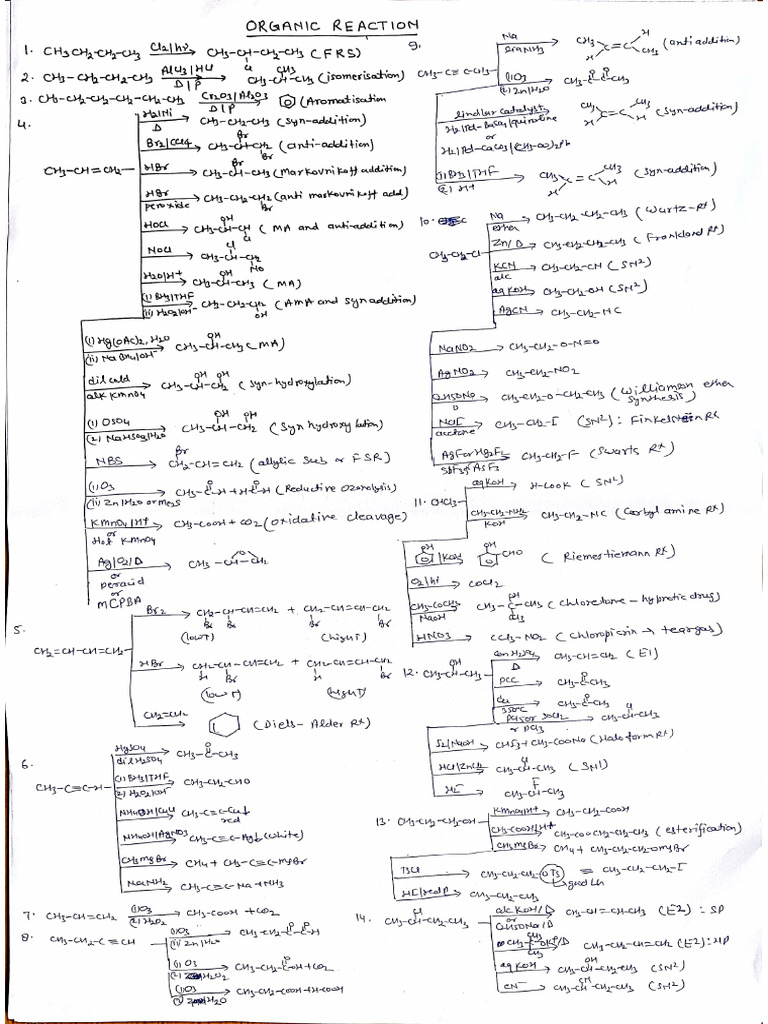 ORGANIC REACTION
1. CH3CH2CH2-CH3 Cl2/hν → CH3-CH-CH2-CH3 (FRS)
Cl
2. CH3-CH2-CH2-CH3 AlCl3/HCl Δ/P → CH3-CH-CH3 (isomerisation)
CH3
3. CH3-CH2-CH2-CH2-CH2-CH3 Cr2O3/Al2O3 Δ/P → (Aromatisation
4. CH3-CH=CH2
H2/Ni Δ → CH3-CH2-CH3 (syn-addition)
Br2/CCl4 → CH3-CH-CH2 (anti-addition)
Br
Br
HBr → CH3-CH-CH3 (Markovnikoff addition)
Br
HBr peroxide → CH3-CH2-CH2 (anti markovnikoff add)
Br
HOCl → CH3-CH-CH (MA and anti-addition)
OH
Cl
NOCl → CH3-CH-CH2
Cl
NO
H2O/H+ → CH3-CH-CH3 (MA)
OH
(i) BH3/THF (ii) H2O2/OH- → CH3-CH2-CH2 (AMA and syn addition)
OH
(i) Hg(OAc)2, H2O (ii) NaBH4/OH- → CH3-CH-CH3 (MA)
OH
dil cold alk KMnO4 → CH3-CH-CH2 (syn-hydroxylation)
OH OH
(i) OsO4 (2) NaHSO3/H2O → CH3-CH-CH2 (syn hydroxylation)
OH OH
NBS → CH2-CH=CH2 (allylic sub or FSR)
Br
(i) O3 (ii) Zn/H2O or me2S → CH3-C-H + H-C-H (Reductive Ozonolysis)
O O
KMnO4/H+ or Hot KMnO4 → CH3-COOH + CO2 (oxidative cleavage)
Ag/O2/Δ or peracid or mCPBA → CH3-CH-CH2
O
5. CH2=CH-CH=CH2
Br2 → CH2-CH-CH=CH2 + CH2-CH=CH-CH2
Br Br Br Br
(low T) (high T)
HBr → CH2-CH-CH=CH2 + CH2-CH=CH-CH2
H Br H Br
(low T) (high T)
CH2=CH2 → (Diels-Alder Rx)
6. CH3-C≡C-H
HgSO4 dil H2SO4 → CH3-C-CH3
O
(i) BH3/THF (2) H2O2/OH- → CH3-CH2-CHO
NH4OH/CuCl → CH3-C≡C-Cu↓
red
NH4OH/AgNO3 → CH3-C≡C-Ag↓ (white)
CH3MgBr → CH4 + CH3-C≡C-MgBr
NaNH2 → CH3-C≡C-Na + NH3
7. CH3-CH=CH2 (i)O3 (2)H2O2 → CH3-COOH + CO2
8. CH3-CH2-C≡CH
(i)O3 (ii) Zn/H2O → CH3-CH2-C-C-H
O O
(i)O3 → CH3-CH2-C-OH + CO2
O
(i)O3 → CH3-CH2-COOH + H-COOH
9. CH3-C≡C-CH3
Na liq NH3 → CH3 H C=C H CH3 (anti addition)
(i)O3 (2)Zn/H2O → CH3-C-C-CH3
O O
Lindlar catalyst H2/Pd-BaSO4/quinoline or H2/Pd-CaCO3/(CH3-COO)2Pb → CH3 CH3 C=C H H (syn-addition)
(1) BH3/THF (2) H+ → CH3 CH3 C=C H H (syn-addition)
10. CH3-CH2-Cl
Na ether → CH3-CH2-CH2-CH3 (Wurtz-Rx)
Zn/Δ → CH3-CH2-CH2-CH3 (Frankland Rx)
KCN alc → CH3-CH2-CN (SN2)
aq KOH → CH3-CH2-OH (SN2)
AgCN → CH3-CH2-NC
NaNO2 → CH3-CH2-O-N=O
AgNO2 → CH3-CH2-NO2
C2H5ONa Δ → CH3-CH2-O-CH2-CH3 (Williamson ether synthesis)
NaI acetone → CH3-CH2-I (SN2): Finkelstein Rx
AgF or Hg2F2 → CH3-CH2-F (Swarts Rx)
11. CHCl3
aq KOH → H-COOK (SN2)
CH3-CH2-NH2 KOH → CH3-CH2-NC (Carbyl amine Rx)
OH /KOH → OH CHO (Riemer tiemann Rx)
O2/hν → COCl2
CH3-COCH3 NaOH → CH3-C-CH3 (Chloretone - hypnotic drug)
OH
CCl3
HNO3 → CCl3-NO2 (chloropicrin → teargas)
12. CH3-CH-CH3
OH
con H2SO4 Δ → CH3-CH=CH2 (E1)
PCC → CH3-C-CH3
O
Cu 350°C → CH3-C-CH3
O
PCl5 or SOCl2 or PCl3 → CH3-CH-CH3
Cl
I2/NaOH → CHI3 + CH3-COONa (Haloform Rx)
HCl/ZnCl2 → CH3-CH-CH3 (SN1)
Cl
HF → CH3-CH-CH3
F
13. CH3-CH2-CH2-OH
KMnO4/H+ → CH3-CH2-COOH
CH3-COOH/H+ → CH3-COOCH2-CH2-CH3 (esterification)
CH3MgBr → CH4 + CH3-CH2-CH2-OMgBr
TsCl → CH3-CH2-CH2-OTs I- → CH3-CH2-CH2-I
good LG
HI/red P → CH3-CH2-CH3
14. CH3-CH-CH2-CH3
Cl
alc KOH/Δ or C2H5ONa/Δ → CH3-CH=CH-CH3 (E2): SP
CH3 CH3-C-OK+/Δ CH3 → CH3-CH2-CH=CH2 (E2): HP
aq KOH → CH3-CH-CH2-CH3 (SN2)
OH
CN- → CH3-CH-CH2-CH3 (SN2)